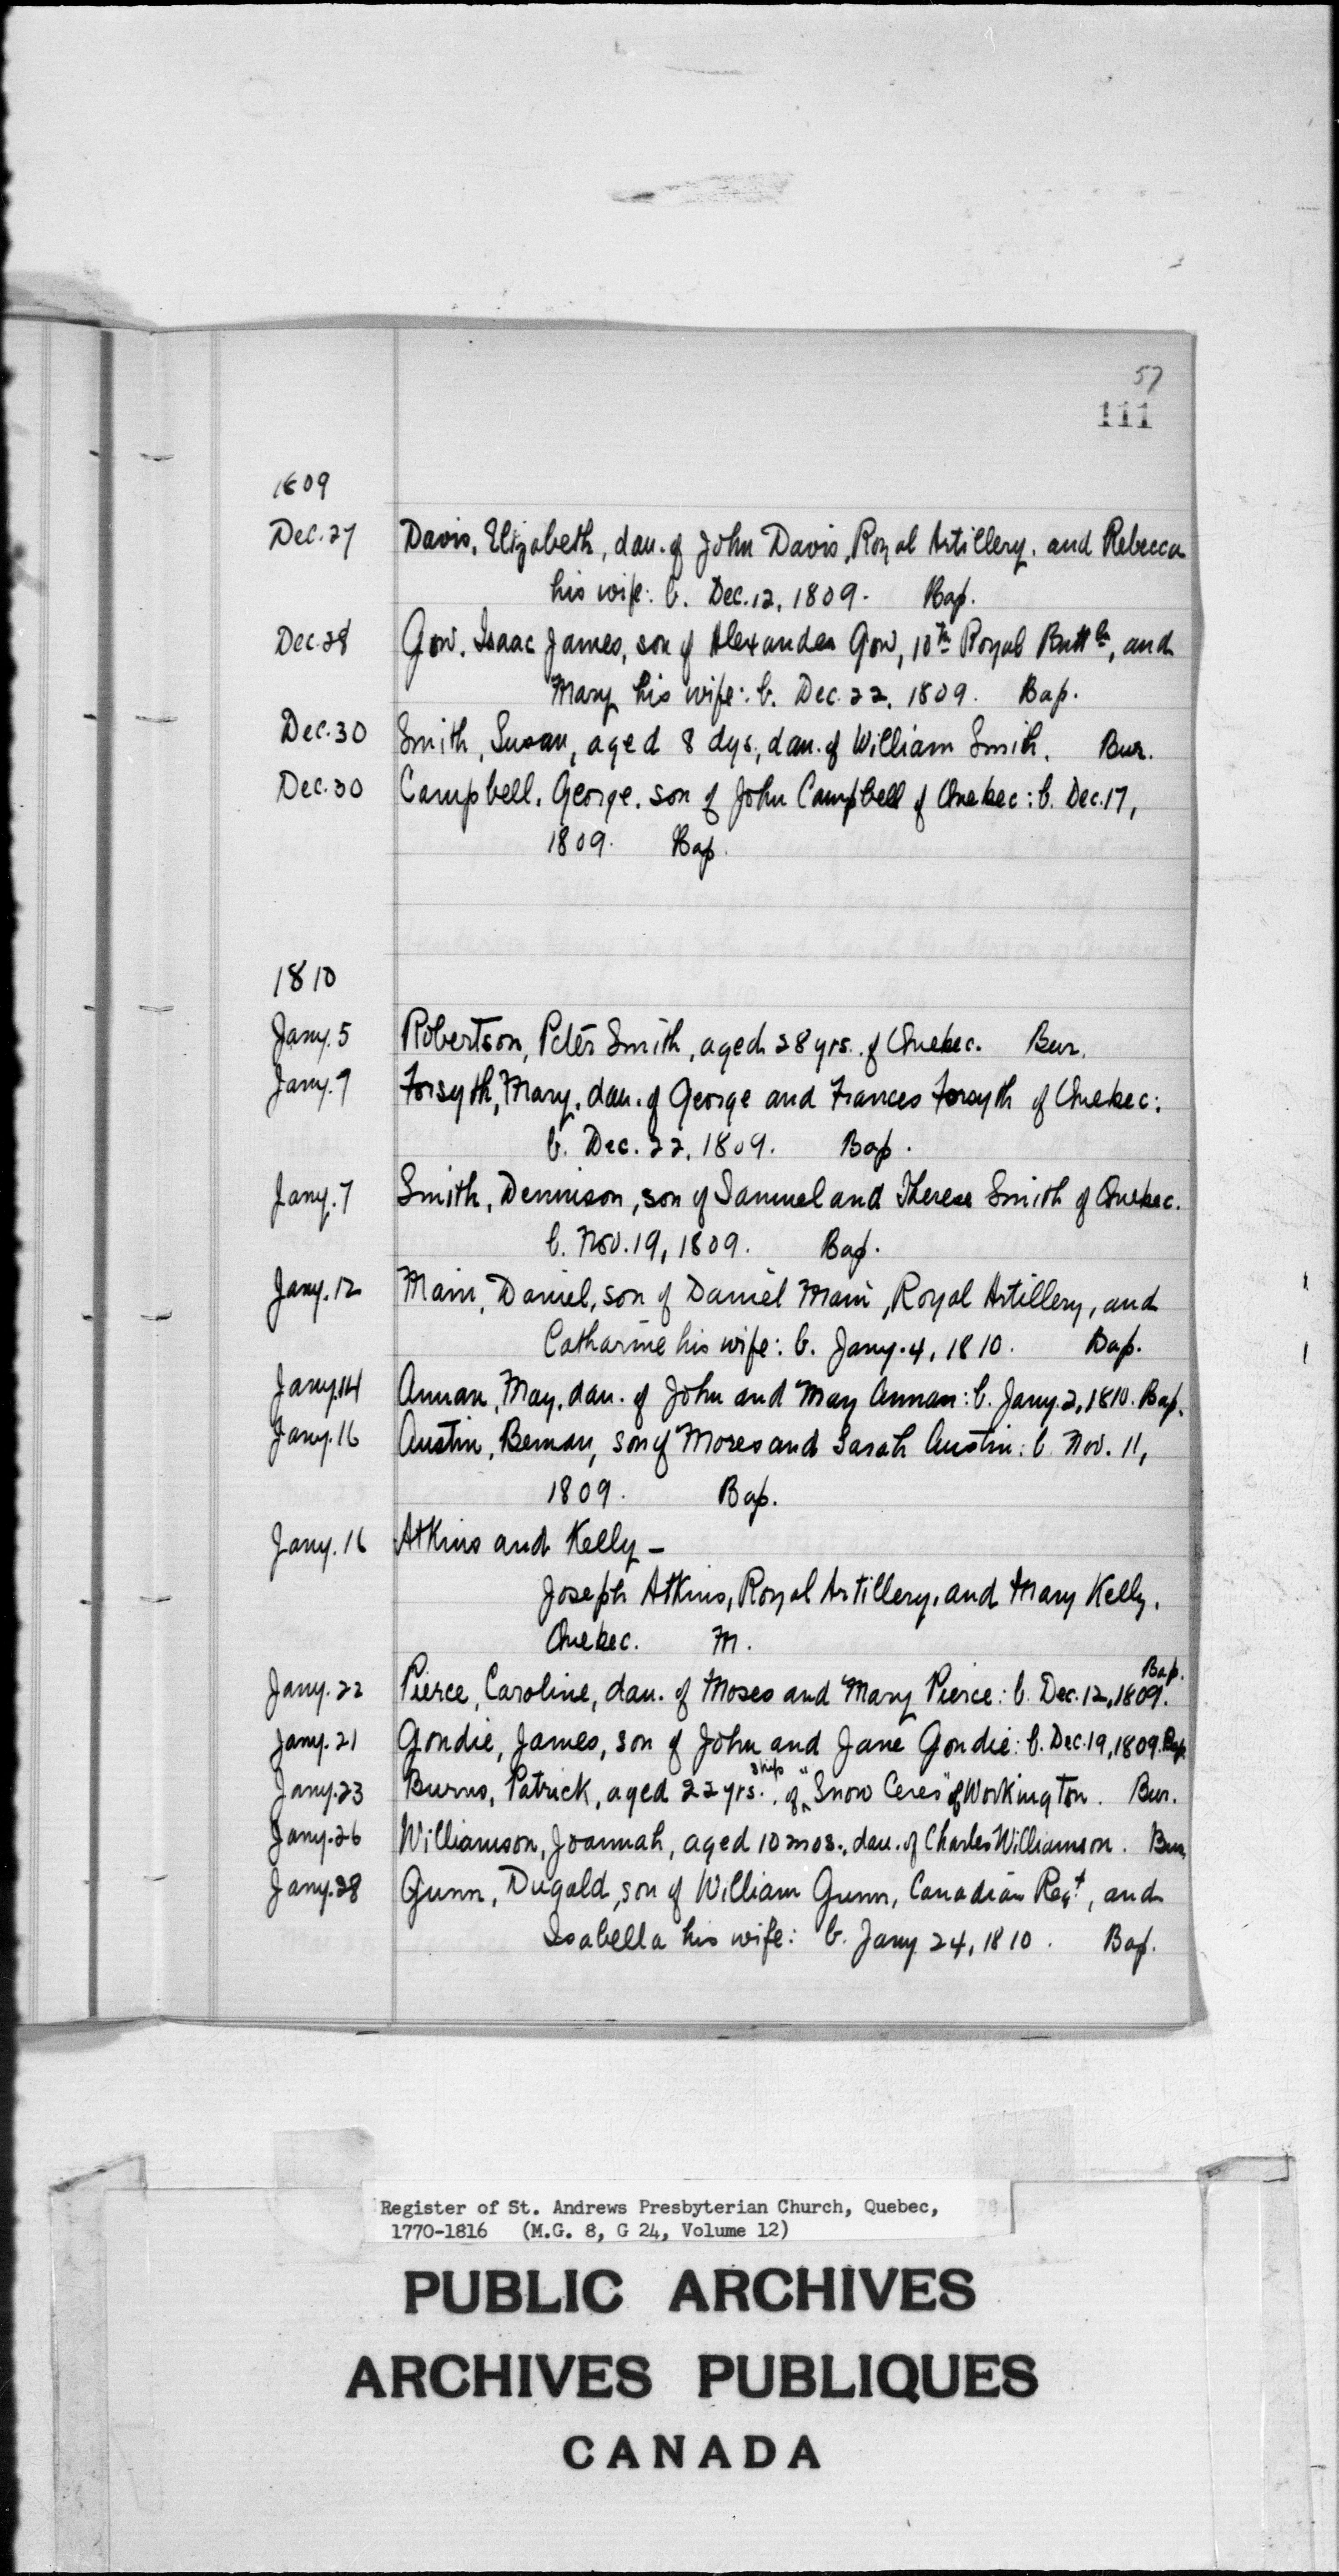 57
111
1809
Dec. 27 Davis, Elizabeth, dau. of John Davis, Royal Artillery, and Rebecca
his wife: b. Dec. 12, 1809. Bap.
Dec. 28 Gow, Isaac James, son of Alexander Gow, 10th Royal Battln, and
Mary his wife: b. Dec. 22, 1809. Bap.
Dec. 30 Smith, Susan, aged 8 dys., dau. of William Smith. Bur.
Dec. 30 Campbell, George, son of John Campbell of Quebec: b. Dec. 17,
1809. Bap.
1810
Jany. 5 Robertson, Peter Smith, aged 28 yrs. of Quebec. Bur.
Jany. 7 Forsyth, Mary, dau. of George and Frances Forsyth of Quebec:
b. Dec. 22, 1809. Bap.
Jany. 7 Smith, Dennison, son of Samuel and Therese Smith of Quebec.
b. Nov. 19, 1809. Bap.
Jany. 12 Main, Daniel, son of Daniel Main, Royal Artillery, and
Catharine his wife: b. Jany. 4, 1810. Bap.
Jany. 14 Annan, May, dau. of John and May Annan: b. Jany. 2, 1810. Bap.
Jany. 16 Austin, Beman, son of Moses and Sarah Austin: b. Nov. 11,
1809. Bap.
Jany. 16 Atkins and Kelly -
Joseph Atkins, Royal Artillery, and Mary Kelly,
Quebec. M.
Jany. 22 Pierce, Caroline, dau. of Moses and Mary Pierce: b. Dec. 12, 1809. Bap.
Jany. 21 Gondie, James, son of John and Jane Gondie: b. Dec. 19, 1809. Bap.
Jany. 23 Burns, Patrick, aged 22 yrs., of ship "Snow Ceres" of Workington. Bur.
Jany. 26 Williamson, Joannah, aged 10 mos., dau. of Charles Williamson. Bur.
Jany. 28 Gunn, Dugald, son of William Gunn, Canadian Regt, and
Isabella his wife: b. Jany 24, 1810. Bap.
Register of St. Andrews Presbyterian Church, Quebec,
1770-1816 (M.G. 8, G 24, Volume 12)
PUBLIC ARCHIVES
ARCHIVES PUBLIQUES
CANADA